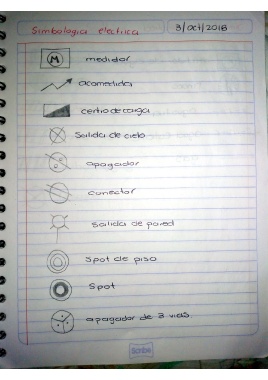 Simbologia electrica 3/oct/2016
M medidor
acometida
centro de carga
Salida de cielo
apagador
conector
salida de pared
Spot de piso
Spot
apagador de 3 vias.
Scribe